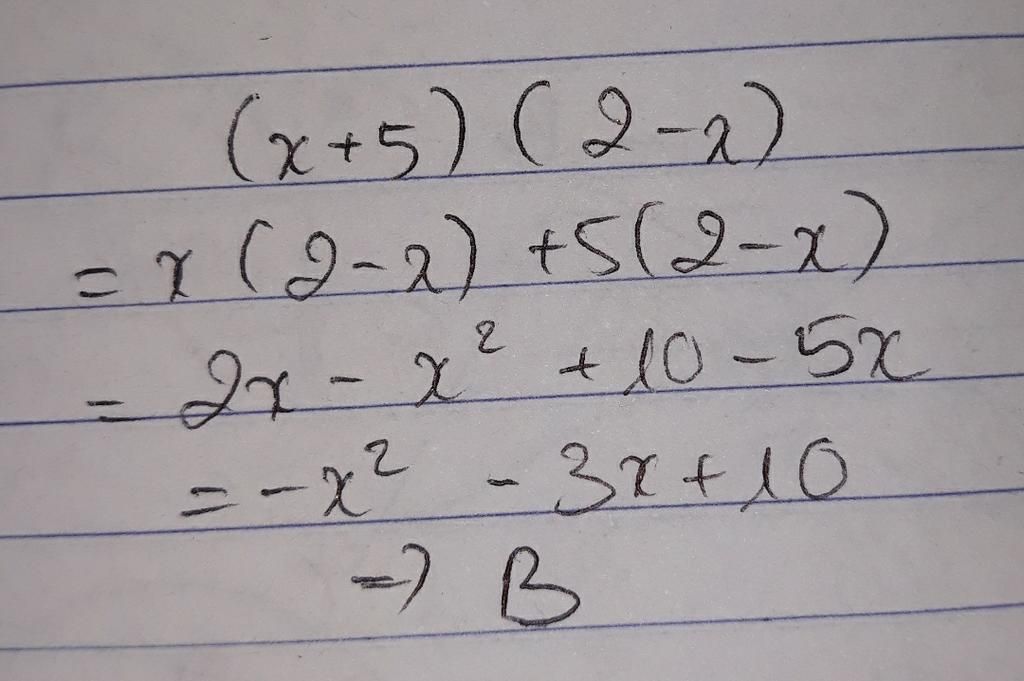 (x+5) (2-x)
= x (2-x) +5(2-x)
= 2x - x² +10 - 5x
= -x² - 3x+10
=> B